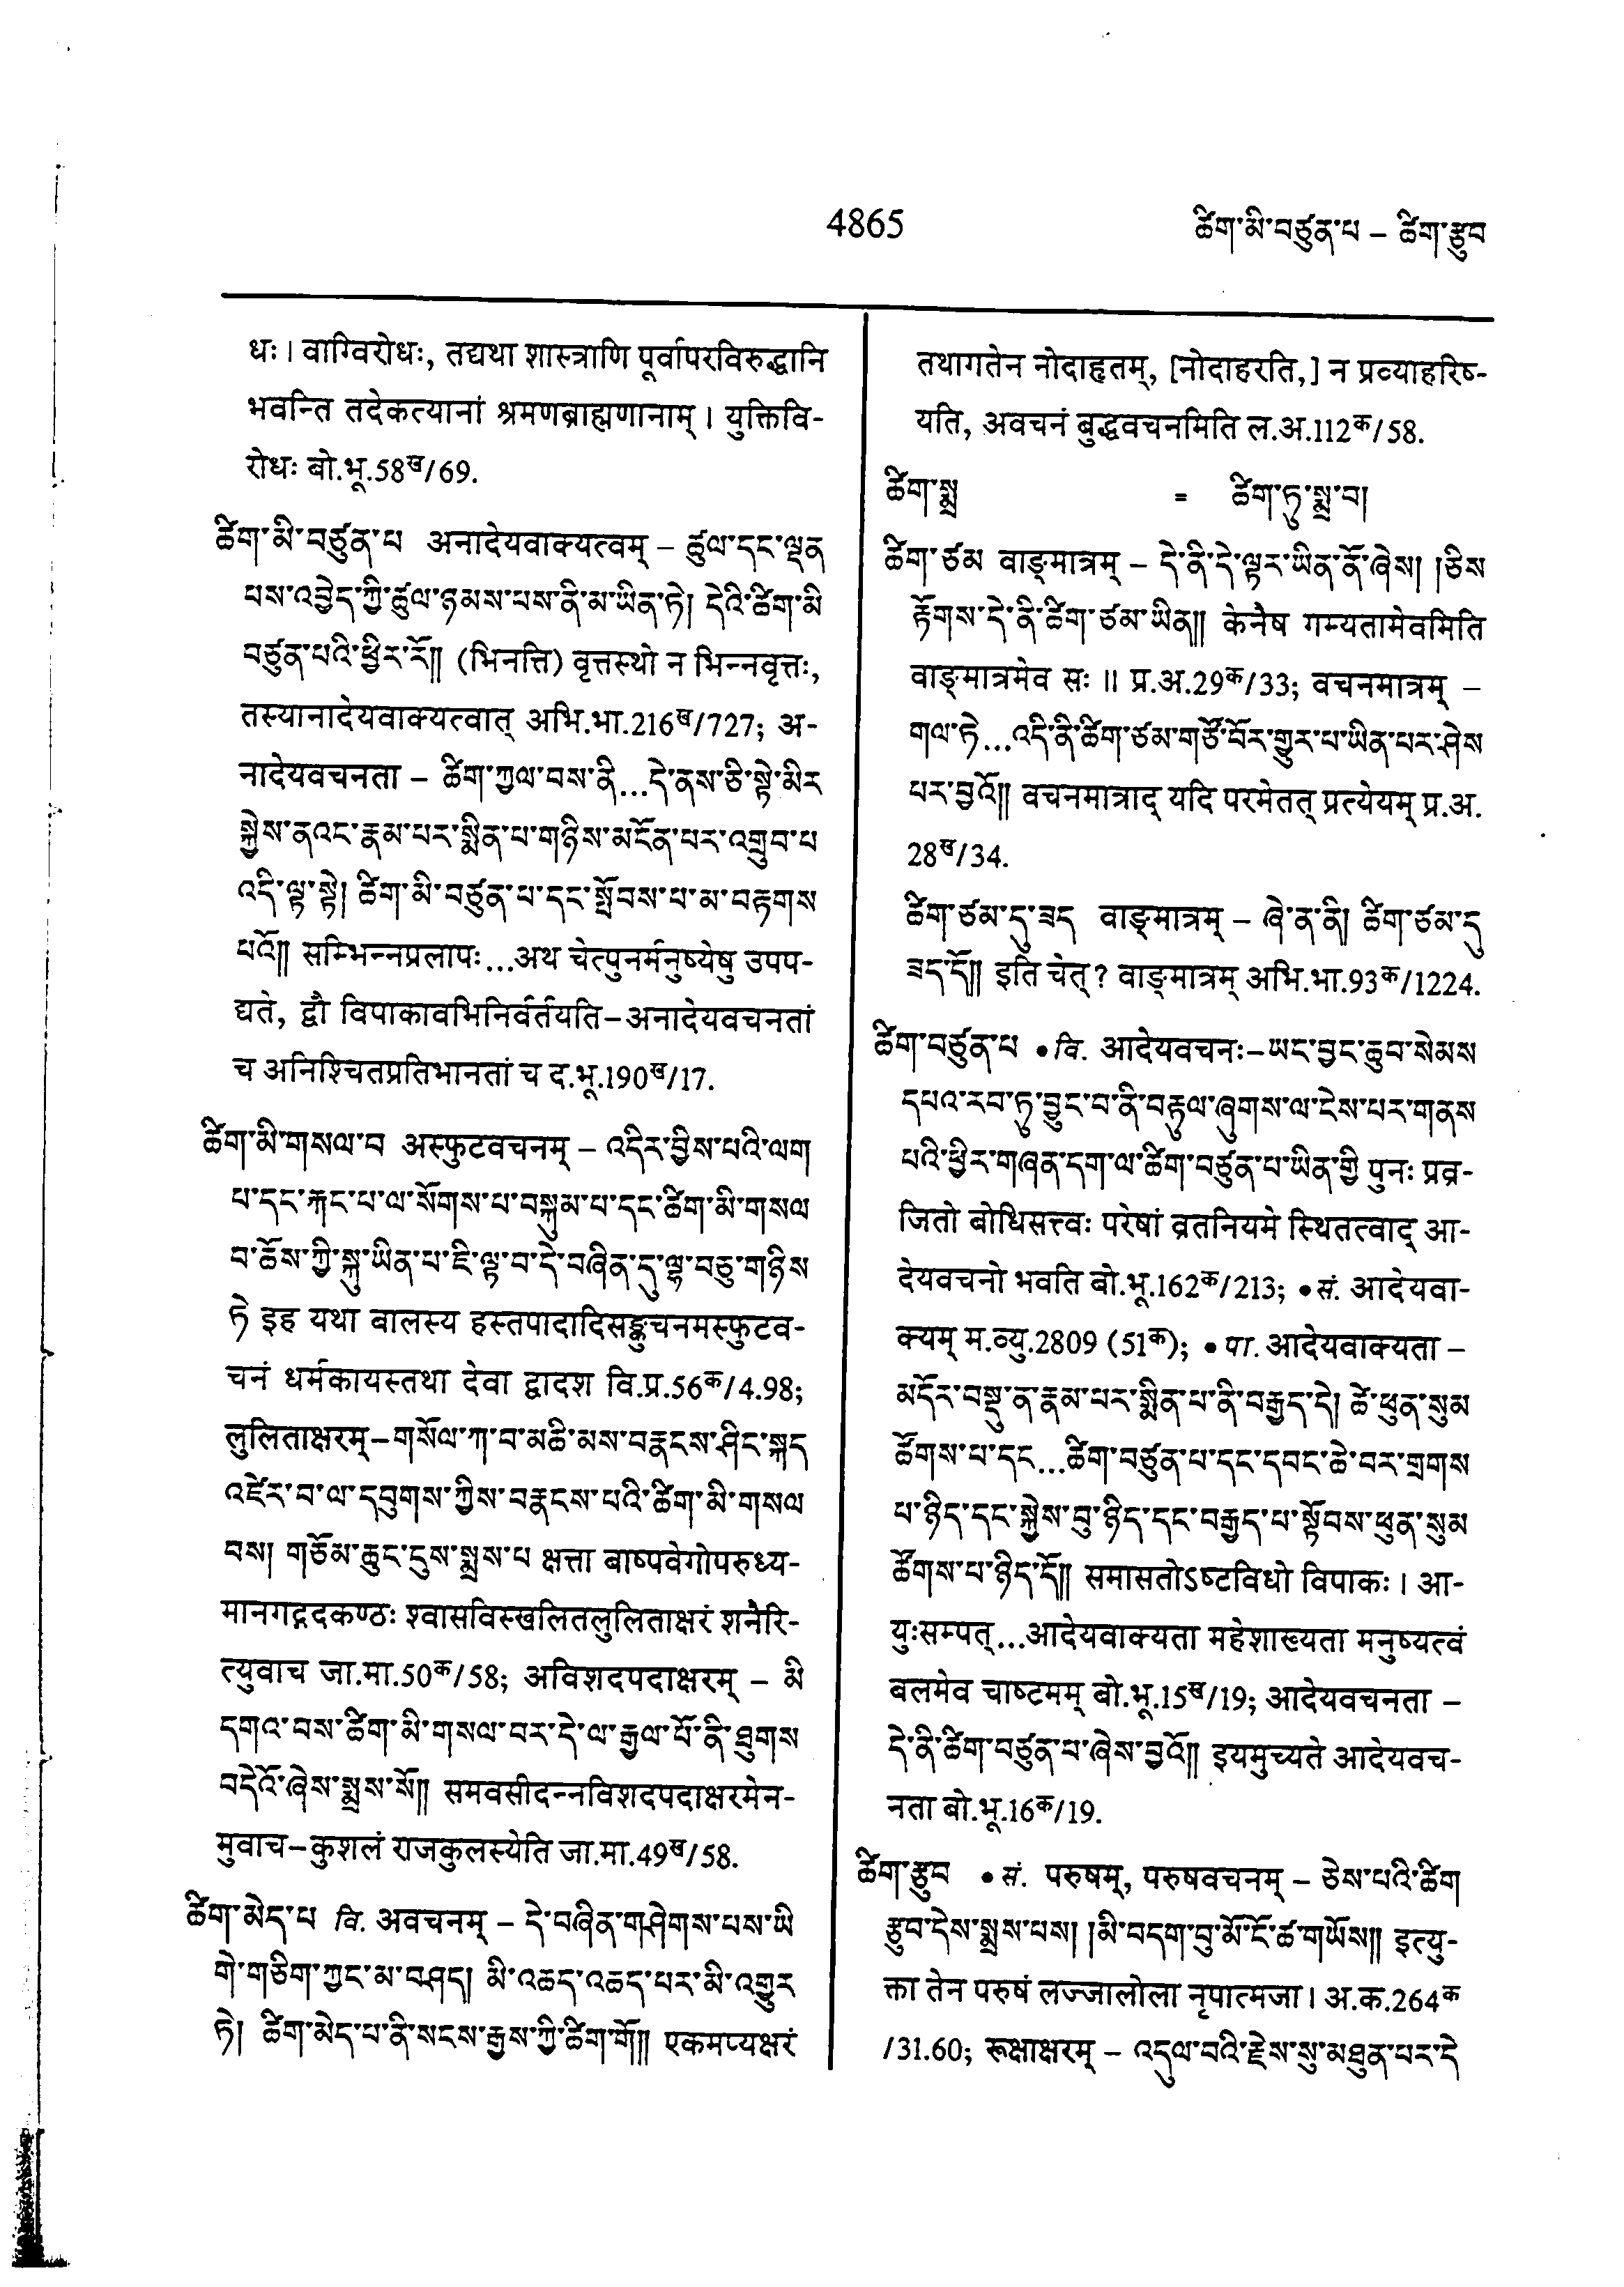 4865
ཚིག་མི་བཙུན་པ – ཚིག་རྩུབ
धः। वाग्विरोधः, तद्यथा शास्त्राणि पूर्वापरविरुद्धानि
भवन्ति तदेकत्यानां श्रमणब्राह्मणानाम्। युक्तिवि-
रोधः बो.भू.58ख/69.
ཚིག་མི་བཙུན་པ अनादेयवाक्यत्वम् – ཚུལ་དང་ལྡན
པས་འབྱེད་ཀྱི་ཚུལ་ཉམས་པས་ནི་མ་ཡིན་ཏེ། དེའི་ཚིག་མི
བཙུན་པའི་ཕྱིར་རོ།། (भिनत्ति) वृत्तस्थो न भिन्नवृत्तः,
तस्यानादेयवाक्यत्वात् अभि.भा.216ख/727; अ-
नादेयवचनता – ཚིག་ཀྱལ་བས་ནི...དེ་ནས་ཅི་སྟེ་མིར
སྐྱེས་ནའང་རྣམ་པར་སྨིན་པ་གཉིས་མངོན་པར་འགྲུབ་པ
འདི་ལྟ་སྟེ། ཚིག་མི་བཙུན་པ་དང་སྤོབས་པ་མ་བརྟགས
པའོ།། सम्भिन्नप्रलापः...अथ चेत्पुनर्मनुष्येषु उपप-
द्यते, द्वौ विपाकावभिनिर्वर्तयति–अनादेयवचनतां
च अनिश्चितप्रतिभानतां च द.भू.190ख/17.
ཚིག་མི་གསལ་བ अस्फुटवचनम् – འདིར་བྱིས་པའི་ལག
པ་དང་རྐང་པ་ལ་སོགས་པ་བསྐུམ་པ་དང་ཚིག་མི་གསལ
བ་ཆོས་ཀྱི་སྐུ་ཡིན་པ་ཇི་ལྟ་བ་དེ་བཞིན་དུ་ལྷ་བཅུ་གཉིས
ཏེ इह यथा बालस्य हस्तपादादिसङ्कुचनमस्फुटव-
चनं धर्मकायस्तथा देवा द्वादश वि.प्र.56क/4.98;
लुलिताक्षरम्–གསོལ་ཀ་བ་མཆི་མས་བརྣངས་ཤིང་སྐད
འཛེར་བ་ལ་དབུགས་ཀྱིས་བརྣངས་པའི་ཚིག་མི་གསལ
བས། གཅོམ་ཆུང་དུས་སྨྲས་པ क्षत्ता बाष्पवेगोपरुध्य-
मानगद्गदकण्ठः श्वासविस्खलितलुलिताक्षरं शनैरि-
त्युवाच जा.मा.50क/58; अविशदपदाक्षरम् – མི
དགའ་བས་ཚིག་མི་གསལ་བར་དེ་ལ་རྒྱལ་པོ་ནི་ཐུགས
བདེའོ་ཞེས་སྨྲས་སོ།། समवसीदन्नविशदपदाक्षरमेन-
मुवाच–कुशलं राजकुलस्येति जा.मा.49ख/58.
ཚིག་མེད་པ वि. अवचनम् – དེ་བཞིན་གཤེགས་པས་ཡི
གེ་གཅིག་ཀྱང་མ་བཤད། མི་འཆད་འཆད་པར་མི་འགྱུར
ཏེ། ཚིག་མེད་པ་ནི་སངས་རྒྱས་ཀྱི་ཚིག་གོ།། एकमप्यक्षरं
तथागतेन नोदाहृतम्, [नोदाहरति,] न प्रव्याहरिष-
यति, अवचनं बुद्धवचनमिति ल.अ.112क/58.
ཚིག་སྨྲ = ཚིག་ཏུ་སྨྲ་བ།
ཚིག་ཙམ वाङ्मात्रम् – དེ་ནི་དེ་ལྟར་ཡིན་ནོ་ཞེས། །ཅིས
རྟོགས་དེ་ནི་ཚིག་ཙམ་ཡིན།། केनैष गम्यतामेवमिति
वाङ्मात्रमेव सः॥ प्र.अ.29क/33; वचनमात्रम् –
གལ་ཏེ...འདི་ནི་ཚིག་ཙམ་གཙོ་བོར་གྱུར་པ་ཡིན་པར་ཤེས
པར་བྱའོ།། वचनमात्राद् यदि परमेतत् प्रत्येयम् प्र.अ.
28ख/34.
ཚིག་ཙམ་དུ་ཟད वाङ्मात्रम् – ཞེ་ན་ནི། ཚིག་ཙམ་དུ
ཟད་དོ།། इति चेत्? वाङ्मात्रम् अभि.भा.93क/1224.
ཚིག་བཙུན་པ •वि. आदेयवचनः–ཡང་བྱང་ཆུབ་སེམས
དཔའ་རབ་ཏུ་བྱུང་བ་ནི་བརྟུལ་ཞུགས་ལ་ངེས་པར་གནས
པའི་ཕྱིར་གཞན་དག་ལ་ཚིག་བཙུན་པ་ཡིན་གྱི पुनः प्रव्र-
जितो बोधिसत्त्वः परेषां व्रतनियमे स्थितत्वाद् आ-
देयवचनो भवति बो.भू.162क/213; •सं. आदेयवा-
क्यम् म.व्यु.2809 (51क); • पा. आदेयवाक्यता –
མདོར་བསྡུ་ན་རྣམ་པར་སྨིན་པ་ནི་བརྒྱད་དེ། ཚེ་ཕུན་སུམ
ཚོགས་པ་དང...ཚིག་བཙུན་པ་དང་དབང་ཆེ་བར་གྲགས
པ་ཉིད་དང་སྐྱེས་བུ་ཉིད་དང་བརྒྱད་པ་སྟོབས་ཕུན་སུམ
ཚོགས་པ་ཉིད་དོ།། समासतोऽष्टविधो विपाकः। आ-
युःसम्पत्...आदेयवाक्यता महेशाख्यता मनुष्यत्वं
बलमेव चाष्टमम् बो.भू.15ख/19; आदेयवचनता –
དེ་ནི་ཚིག་བཙུན་པ་ཞེས་བྱའོ།། इयमुच्यते आदेयवच-
नता बो.भू.16क/19.
ཚིག་རྩུབ •सं. परुषम्, परुषवचनम् – ཅེས་པའི་ཚིག
རྩུབ་དེས་སྨྲས་པས། །མི་བདག་བུ་མོ་ངོ་ཚ་གཡོས།། इत्यु-
क्ता तेन परुषं लज्जालोला नृपात्मजा। अ.क.264क
/31.60; रूक्षाक्षरम् – འདུལ་བའི་རྗེས་སུ་མཐུན་པར་དེ